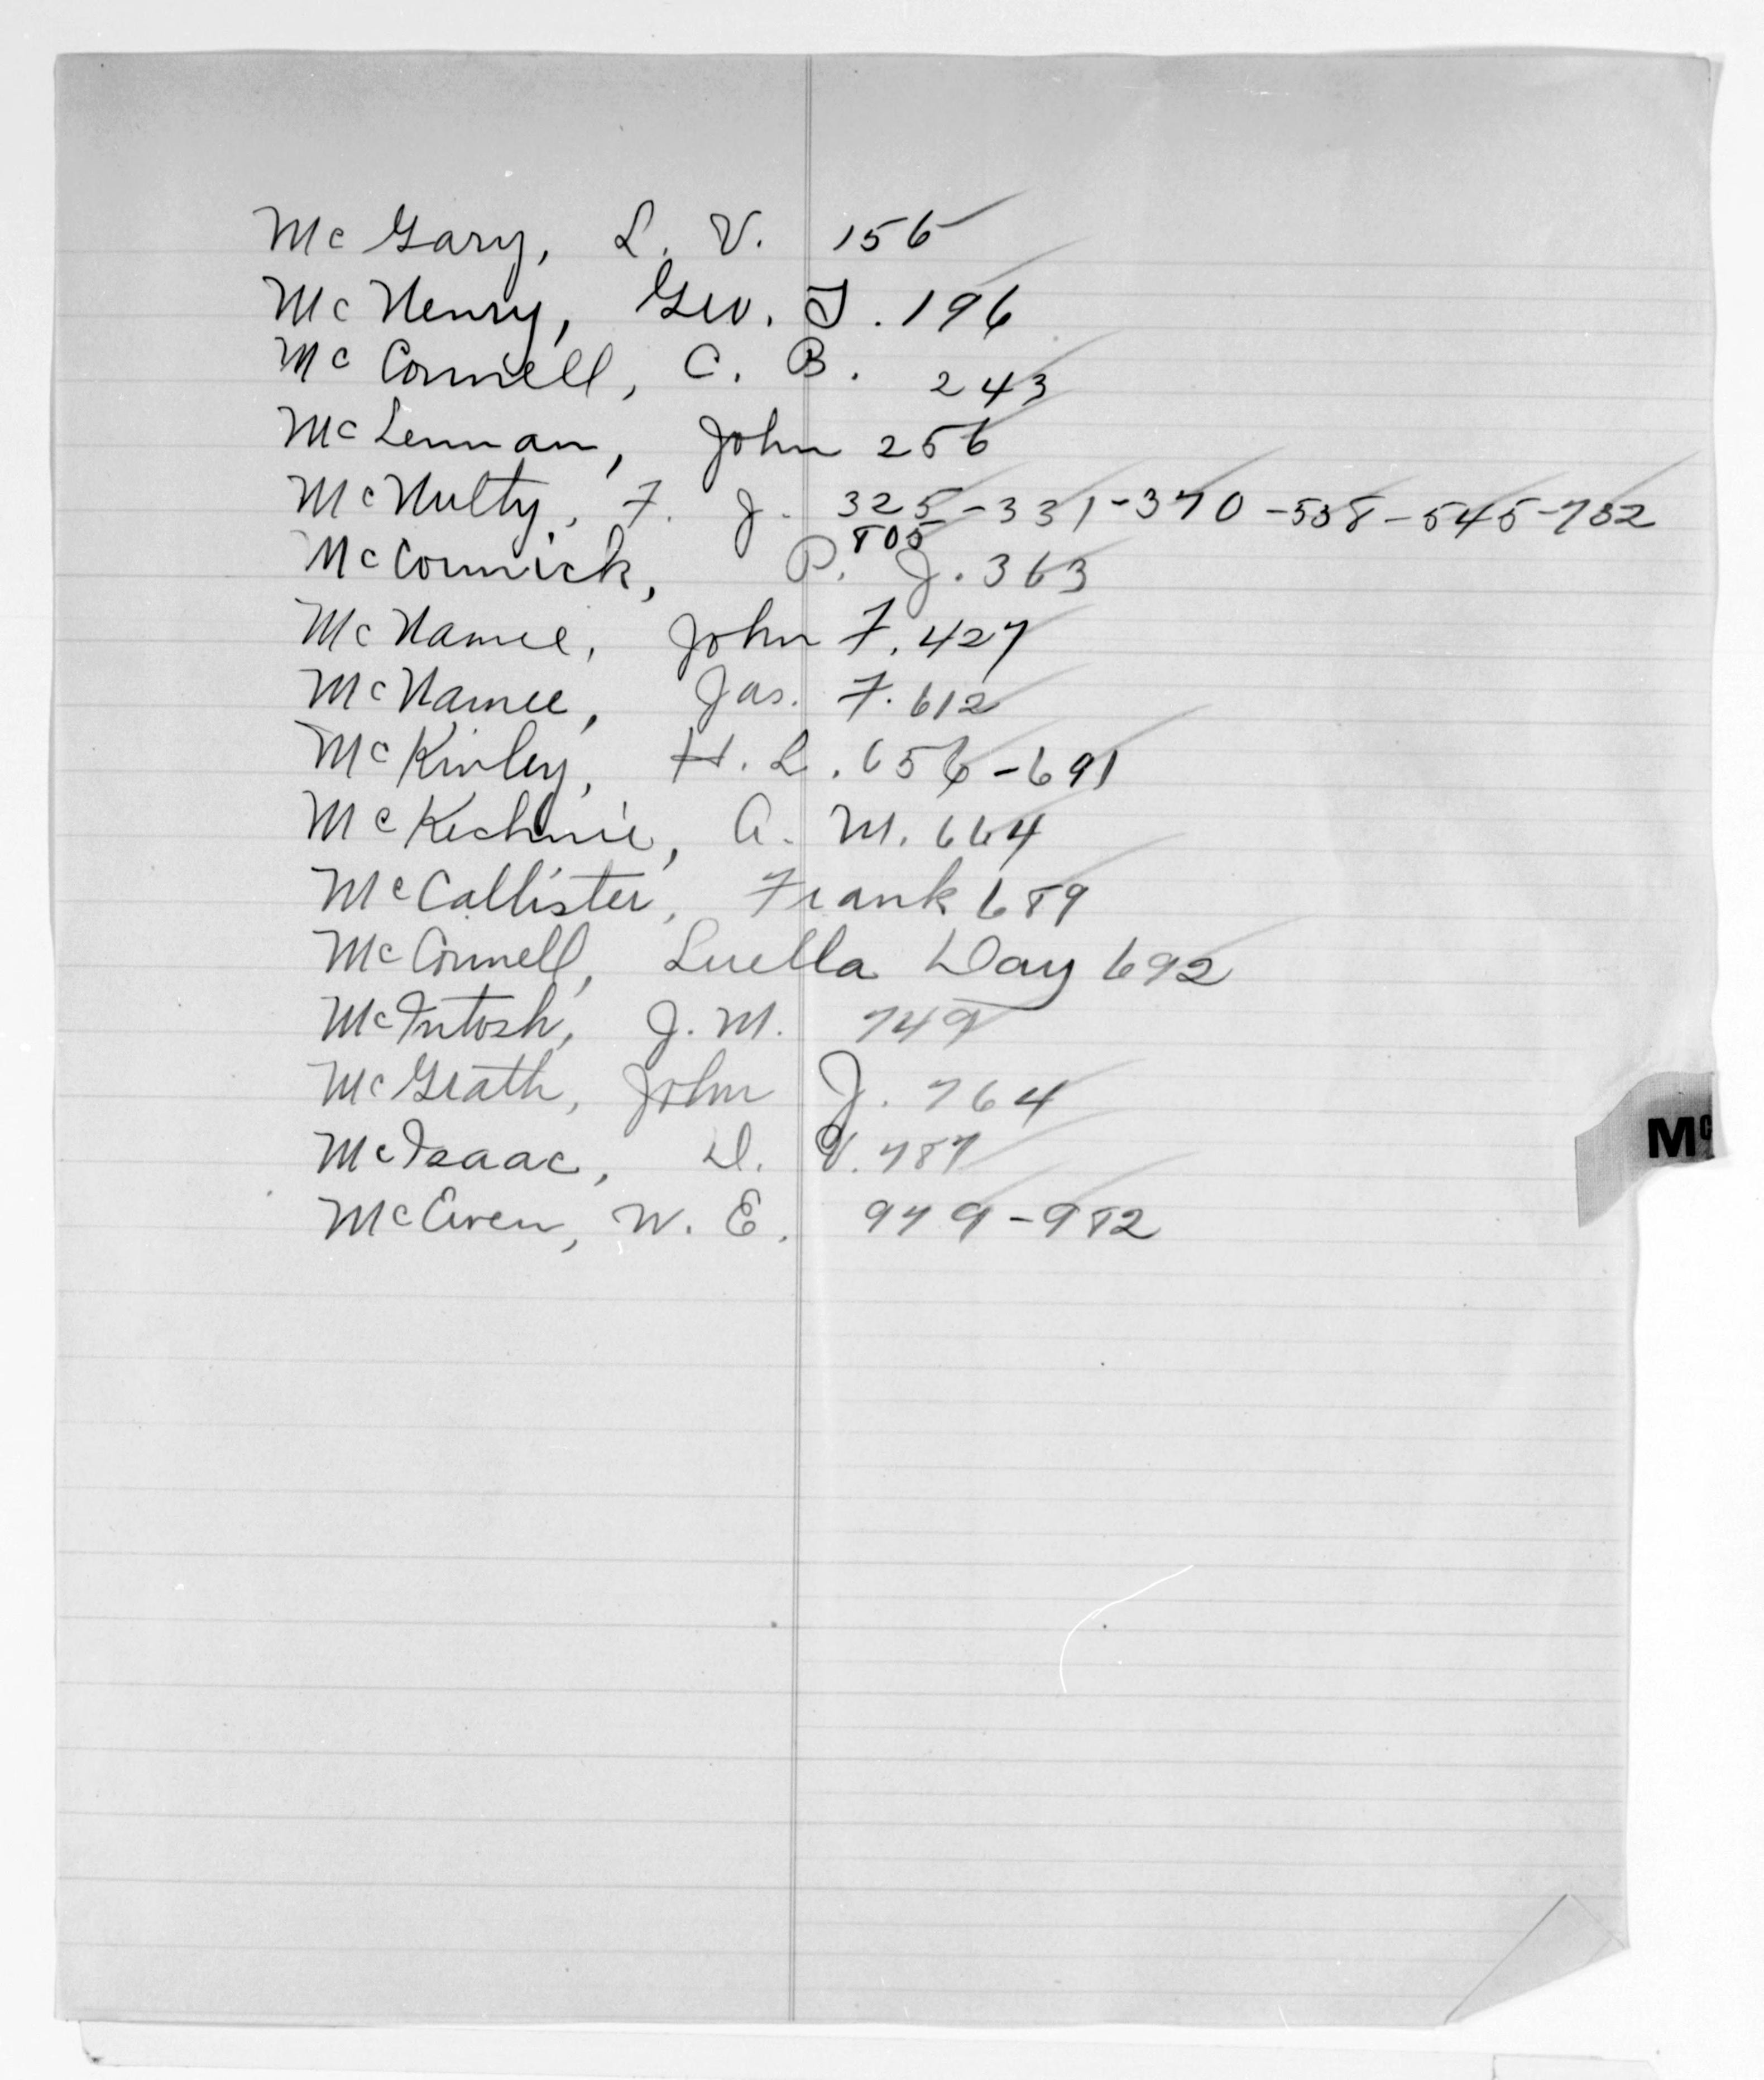 McGary, L. V. 156
McHenry, Geo. T. 196
McConnell, C. B. 243
McLennan, John 256
McNulty, F. J. 325-331-370-538-545-782
805
McCormick, P. J. 363
McNamee, John F. 427
McNamee, Jas. F. 612
McKinley, H. L. 656-691
McKechnie, A. M. 664
McCallister, Frank 689
McConnell, Luella Day 692
McIntosh, J. M. 749
McGrath, John J. 764
Mc
McIsaac, D. V. 787
McEwen, W. E. 979-982